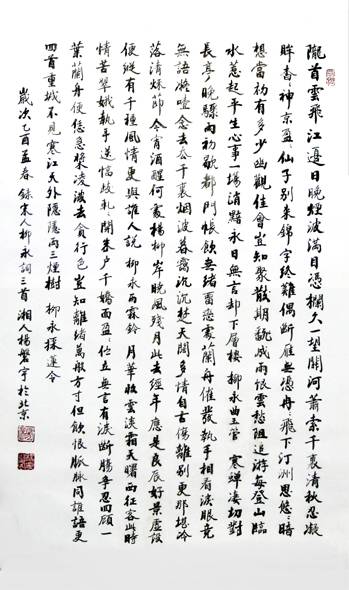 隴首雲飛江邊日晚煙波滿目憑闌久一望關河蕭索千裏清秋忍凝
眸杳神京盈々仙子別來錦字終難偶斷雁無憑冉々飛下汀洲思悠々暗
想當初有多少幽歡佳會豈知聚散難期翻成雨恨雲愁阻追游每登山臨
水惹起平生心事一場消黯永日無言却下層樓 柳永曲玉管 寒蟬凄切對
長亭晚驟雨初歇都門帳飲無緒留戀處蘭舟催發執手相看淚眼竟
無語凝噎念去去千裏烟波暮靄沉沉楚天闊多情自古傷離別更那堪冷
落清秋節今宵酒醒何處楊柳岸曉風殘月此去經年應是良辰好景虛設
便縱有千種風情更與誰人說 柳永雨霖鈴 月華收雲淡霜天曙西征客此時
情苦翠娥執手送臨歧軋々開朱戶千嬌面盈々佇立無言有淚斷腸爭忍回顧一
葉蘭舟便恁急槳凌波去貪行色豈知離緒萬般方寸但飲恨脈脈同誰語更
回首重城不見寒江天外隱隱兩三煙樹 柳永採蓮令
歲次乙酉孟春錄宋人柳永詞三首湘人楊磐宇於北京